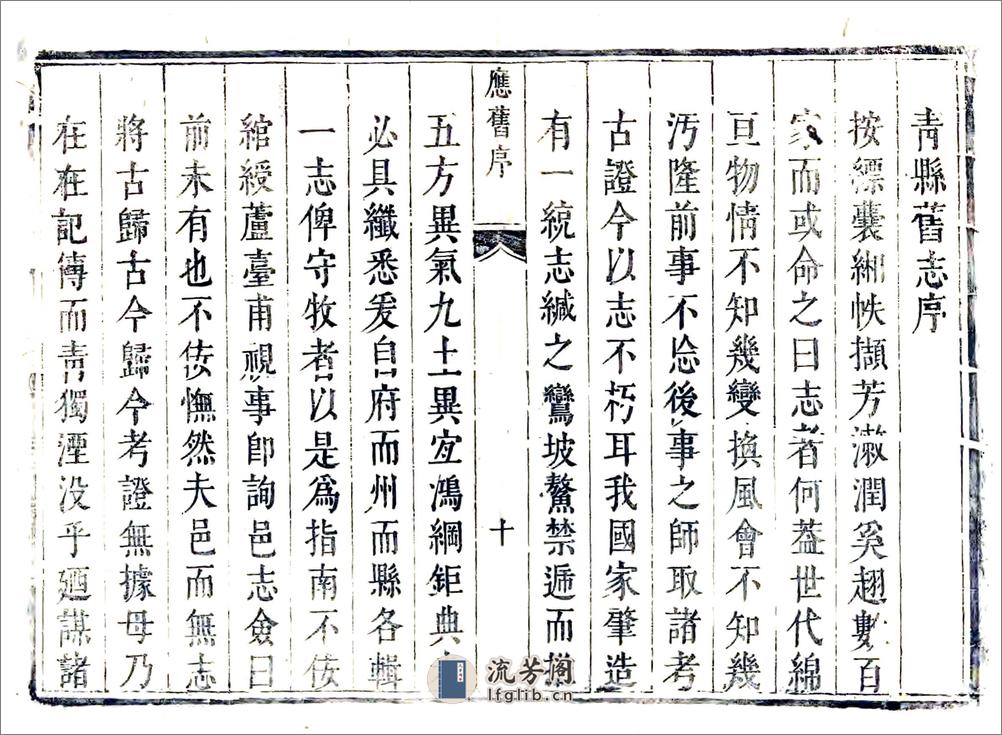 青縣舊志序
按縹囊緗帙擷芳漱潤奚翅數百
家而或命之曰志者何蓋世代綿
亘物情不知幾變換風會不知幾
汚隆前事不忘後事之師取諸考
古證今以志不朽耳我國家肇造
有一統志緘之鸞坡鰲禁遞而
應舊序
十
五方異氣九土異宜鴻綱鉅典
必具纖悉爰自府而州而縣各輯
一志俾守牧者以是爲指南不佞
綰綬蘆臺甫視事卽詢邑志僉曰
前未有也不佞憮然夫邑而無志
將古歸古今歸今考證無據毋乃
在在記傳而靑獨湮没乎廼謀諸
流芳阁
lfglib.cn